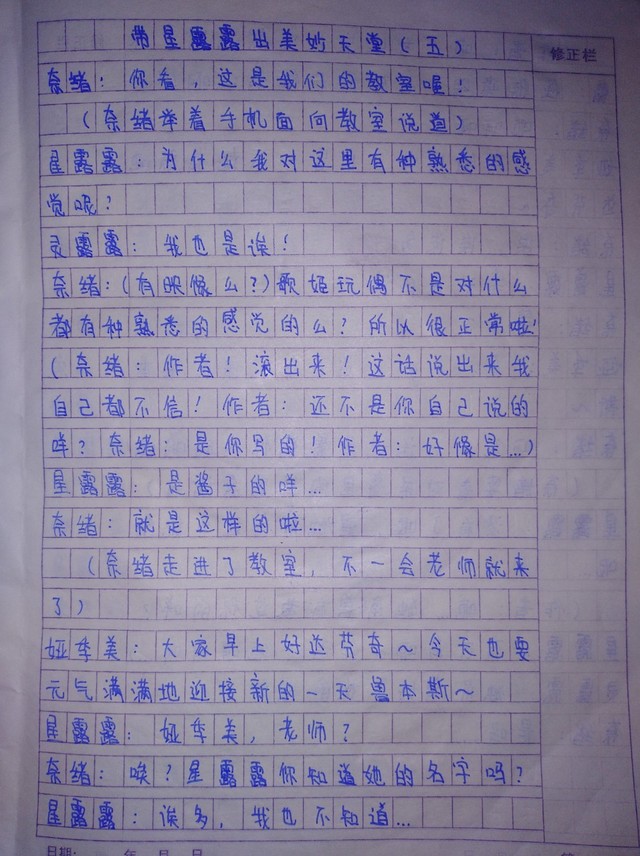 带星露露出美妙天堂(五)
修正栏
奈绪:你看,这是我们的教室喔!
(奈绪举着手机面向教室说道)
星露露:为什么我对这里有种熟悉的感
觉呢?
灵露露:我也是诶!
奈绪:(有眼像么?)歌姬玩偶不是对什么
都有种熟悉的感觉的么?所以很正常啦!
(奈绪:作者!滚出来!这话说出来我
自己都不信!作者:还不是你自己说的
咩?奈绪:是你写的!作者:好像是…)
星露露:是酱子的咩…
奈绪:就是这样的啦…
(奈绪走进了教室,不一会老师就来
了)
娅季美:大家早上好达芬奇~今天也要
元气满满地迎接新的一天鲁本斯~
星露露:娅季美,老师?
奈绪:唉?星露露你知道她的名字吗?
星露露:诶多,我也不知道…
日期: 年 月 日